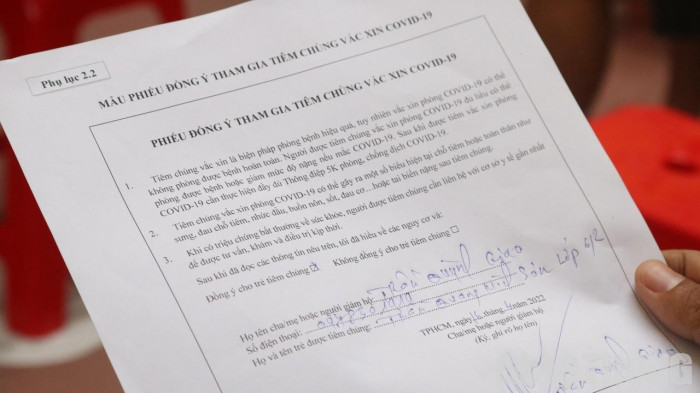 Phụ lục 2.2
MẪU PHIẾU ĐỒNG Ý THAM GIA TIÊM CHỦNG VẮC XIN COVID-19
PHIẾU ĐỒNG Ý THAM GIA TIÊM CHỦNG VẮC XIN COVID-19
1. Tiêm chủng vắc xin là biện pháp phòng bệnh hiệu quả, tuy nhiên vắc xin phòng COVID-19 có thể
không phòng được bệnh hoàn toàn. Người được tiêm chủng vắc xin phòng COVID-19 đủ liều có thể
phòng được bệnh hoặc giảm mức độ nặng nếu mắc COVID-19. Sau khi được tiêm vắc xin phòng
COVID-19 cần thực hiện đầy đủ Thông điệp 5K phòng, chống dịch COVID-19.
2. Tiêm chủng vắc xin phòng COVID-19 có thể gây ra một số biểu hiện tại chỗ tiêm hoặc toàn thân như
sưng, đau chỗ tiêm, nhức đầu, buồn nôn, sốt, đau cơ...hoặc tai biến nặng sau tiêm chủng.
3. Khi có triệu chứng bất thường về sức khỏe, người được tiêm chủng cần liên hệ với cơ sở y tế gần nhất
để được tư vấn, khám và điều trị kịp thời.
Sau khi đã đọc các thông tin nêu trên, tôi đã hiểu về các nguy cơ và:
Đồng ý cho trẻ tiêm chủng Không đồng ý cho trẻ tiêm chủng
Họ tên cha/mẹ hoặc người giám hộ: Quỳnh Giao
Số điện thoại:
Họ và tên trẻ được tiêm chủng: Quang Lớp 6/2
TPHCM, ngày 16 tháng 4 năm 2022
Cha/mẹ hoặc người giám hộ
(Ký, ghi rõ họ tên)
Quỳnh Giao